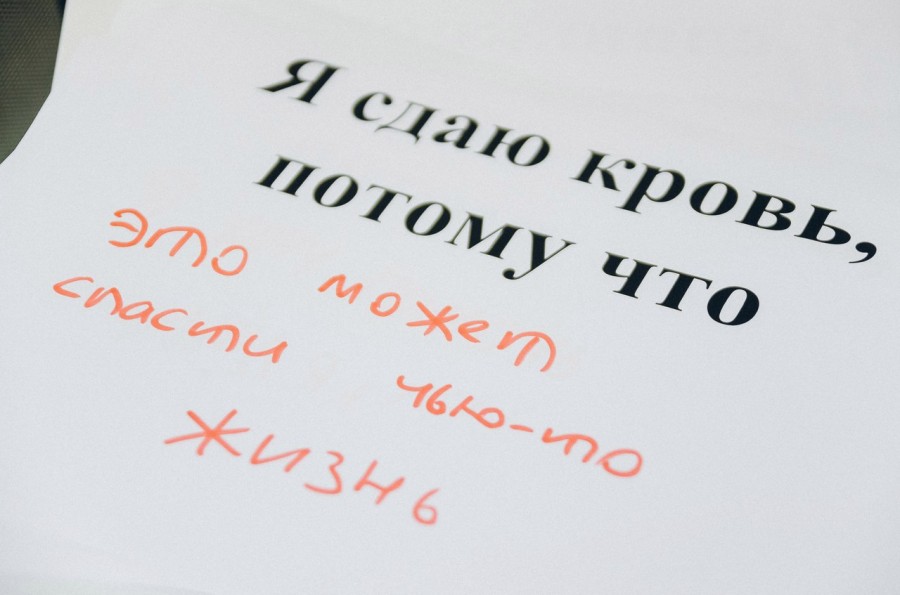 Я сдаю кровь,
потому что
это может
спасти чью-то
жизнь